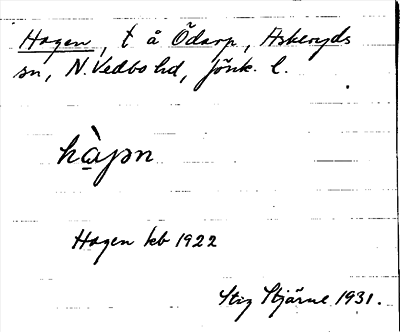 Hagen, t å Ödarp, Askeryds
sn, N. Vedbo hd, Jönk. l.
hàgən
Hagen kb 1922
Stig Stjärne 1931.